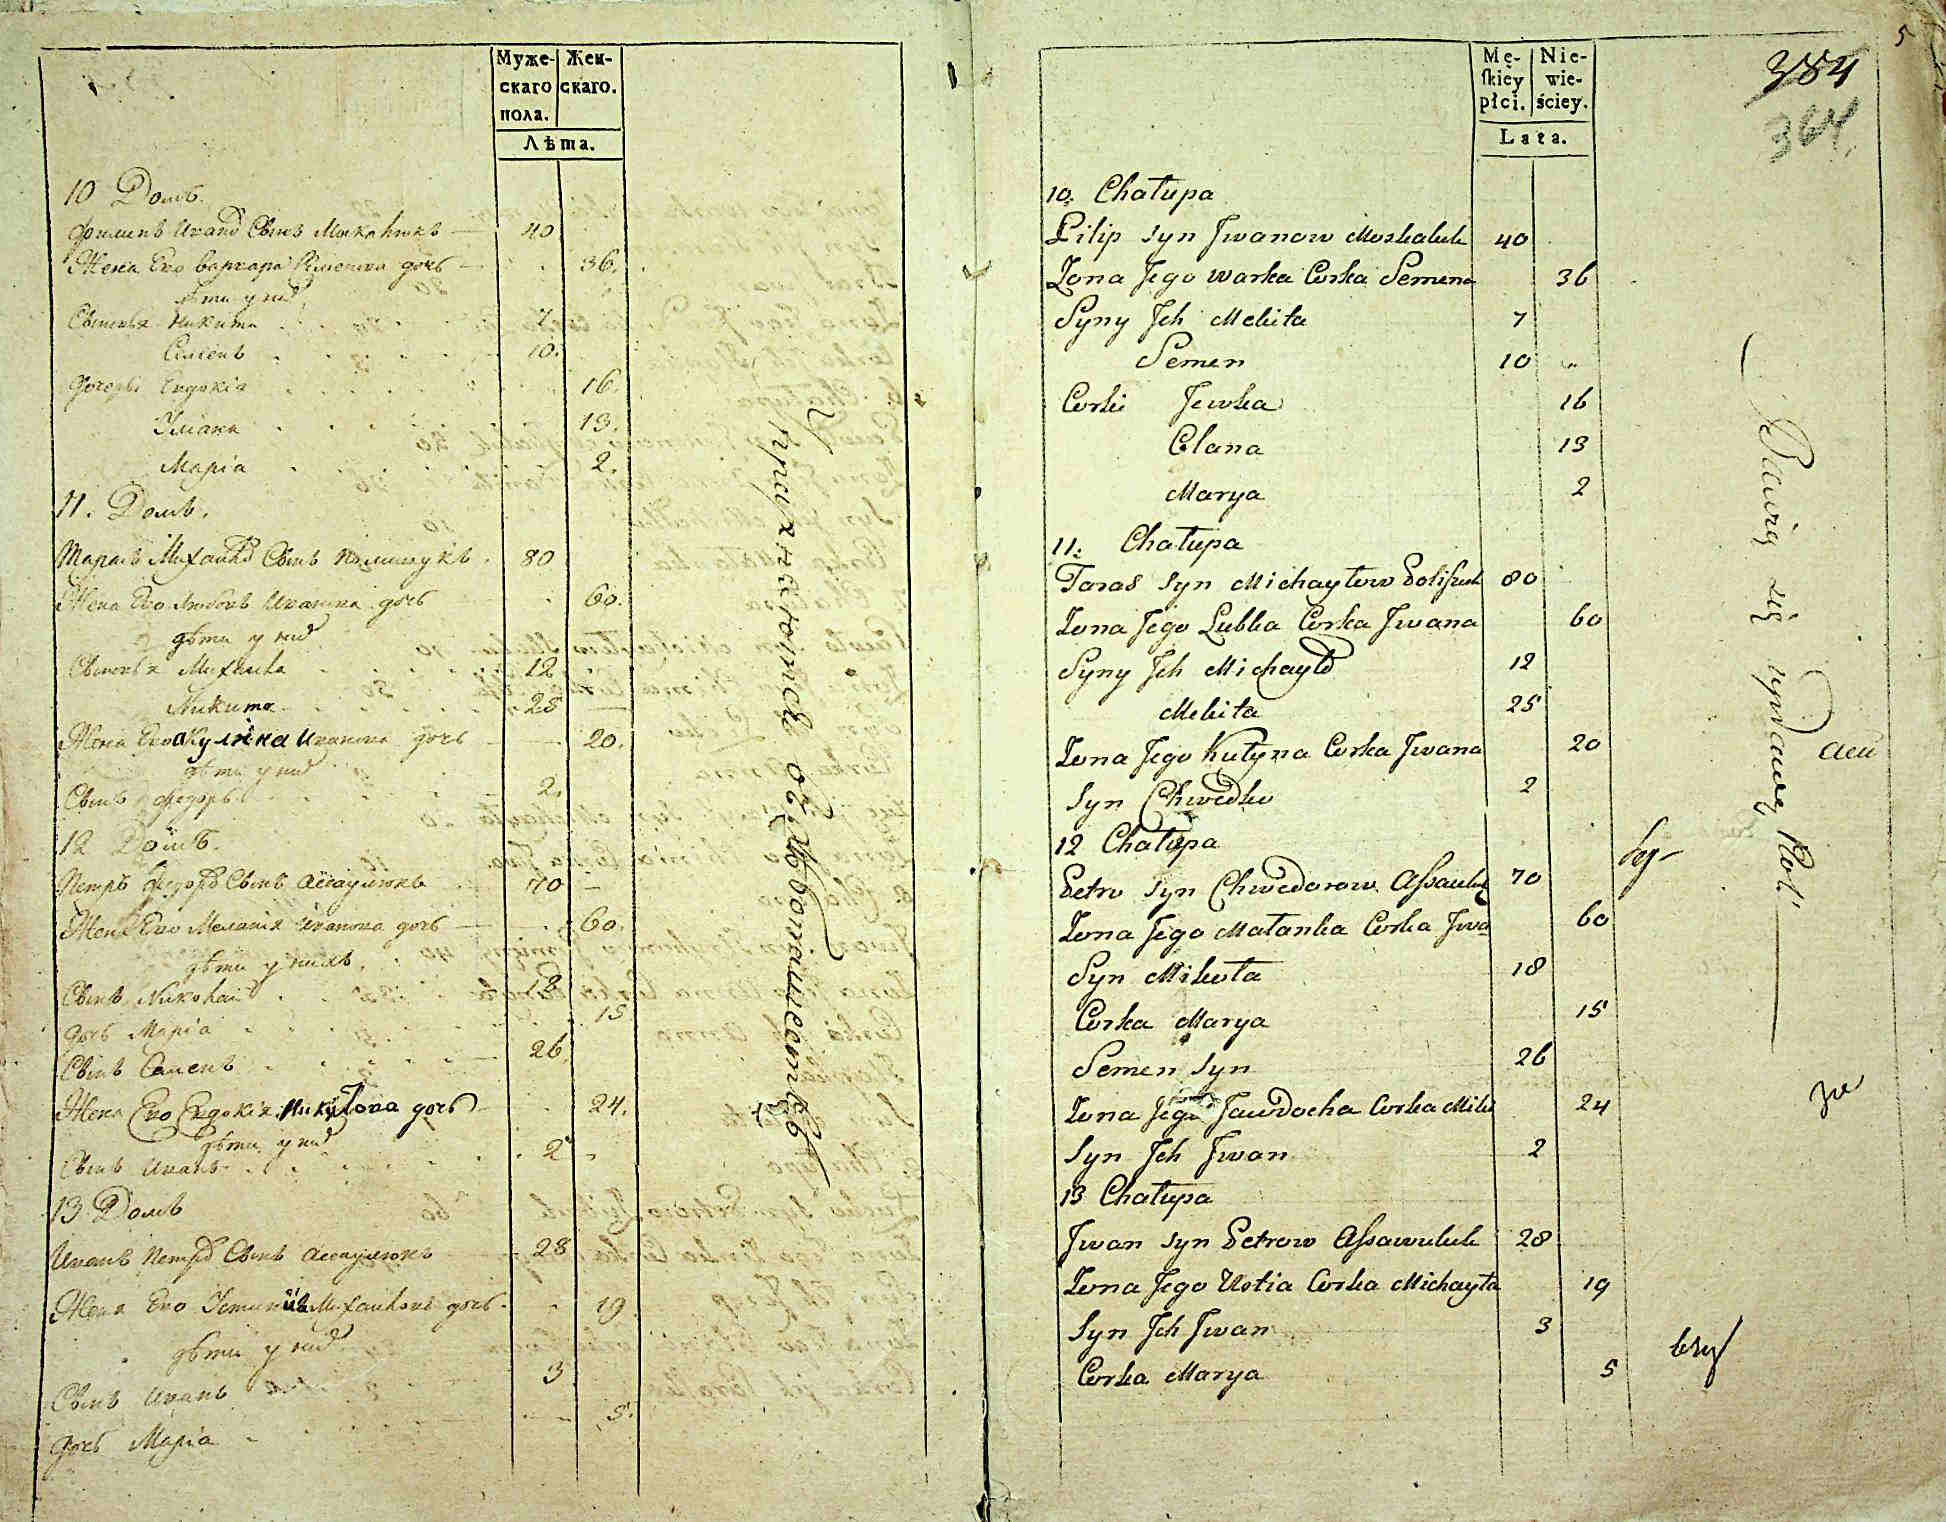 Муже-
скаго
пола.
Жен-
скаго.
Лѣта.
10 Домъ.
Филипъ Иванд Сынъ 40
Жена Ево Варвара Сѣменова дочь 36.
дѣти у нид
Сыновья Никита 7
Сименъ 10.
Дочери Евдокія 16.
Уліана 13.
Маріа 2.
11. Домъ.
Тарасъ Михаилд Сынъ Полищукъ. 80
Жена Ево Любовъ Иванова дочь 60.
дѣти у нид
Сыновья Михаила 12
Никита 25
Жена Ево Акулина Иванова дочь 20.
дѣти у нид
Сынъ Федоръ 2.
12 Домъ.
Петръ Федорд Сынъ Ассаулюкъ 70
Жена Ево Меланія Иванова дочь 60.
дѣти у нихъ.
Сынъ Николай 18
дочь Маріа 15
Сынъ Семенъ 26.
Жена Ево Евдокія Никитова дочь 24.
дѣти у нид
Сынъ Иванъ 2
13 Домъ
Иванъ Петрд Сынъ Ассаулюкъ 28
Жена Ево Устинія Михайлова дочь. 19
дѣти у нид
Сынъ Иванъ 3
дочь Маріа 5.
Упражняются въ хлебопашествѣ
5
384
364.
Mę-
skiey
płci.
Nie-
wie-
ściey.
Lata.
10. Chałupa
Pilip syn Jwanow Moskaluk 40
Zona Jego Warka Corka Semena 36
Syny Jch Mekita 7
Semen 10
Corki Jewka 16
Olana 13
Marya 2
11. Chałupa
Taras syn Michayłow Polisuk 80
Zona Jego Lubka Corka Jwana 60
Syny Jch Michayło 12
Mekita 25
Zona Jego Kulyna Corka Jwana 20
Syn Chwedko 2
12 Chałupa
Petro syn Chwedorow Assauluk 70
Zona Jego Małanka Corka Jwa 60
Syn Mikoła 18
Corka Marya 15
Semen syn 26
Zona Jego Jawdocha Corka Miki 24
Syn Jch Jwan 2
13 Chałupa
Jwan syn Petrow Assawuluk 28
Zona Jego Ustia Corka Michayła 19
Syn Jch Jwan 3
Corka Marya 5
Bawią się uprawą Roli